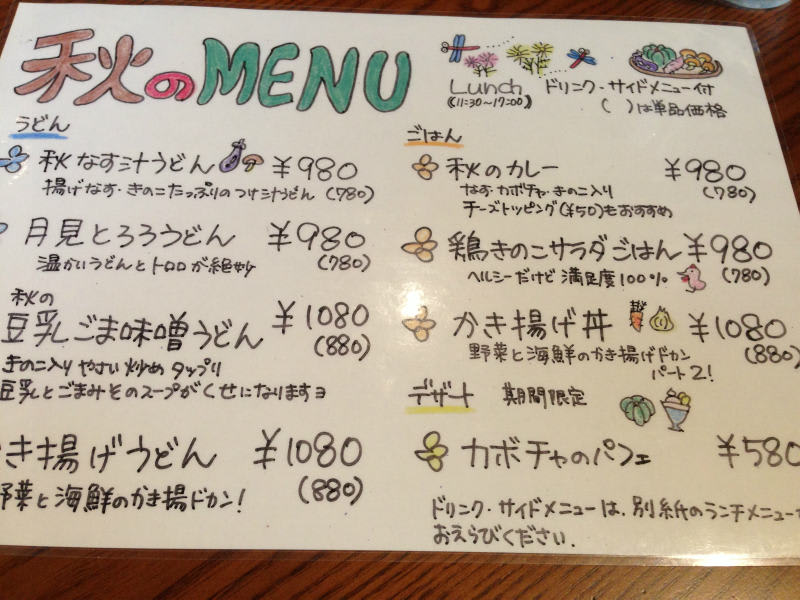 秋のMENU
Lunch
(11:30~17:00)
ドリンク・サイドメニュー付
( )は単品価格
うどん
秋なす汁うどん ¥980
揚げなす・きのこたっぷりのつけ汁うどん (780)
月見とろろうどん ¥980
温かいうどんとトロロが絶妙 (780)
秋の
豆乳ごま味噌うどん ¥1080
(880)
きのこ入りやさい炒めタップリ
豆乳とごまみそのスープがくせになりますヨ
き揚げうどん ¥1080
野菜と海鮮のかき揚ドカン! (880)
ごはん
秋のカレー ¥980
なす・カボチャ・きのこ入り (780)
チーズトッピング(¥50)もおすすめ
鶏きのこサラダごはん ¥980
ヘルシーだけど満足度100% (780)
かき揚げ丼 ¥1080
野菜と海鮮のかき揚げドカン (880)
パート2!
デザート 期間限定
カボチャのパフェ ¥580
ドリンク・サイドメニューは、別紙のランチメニュー
おえらびください.